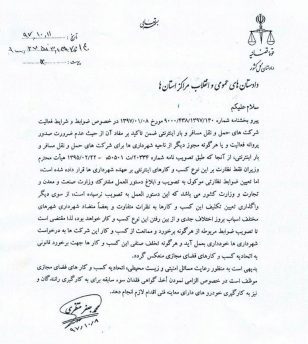 بسمه تعالی
قوه قضائیه
دادستانی کل کشور
۹۷,۱۰,۱۱
دادستان های عمومی و انقلاب مراکز استان ها
سلام علیکم
پیرو بخشنامه شماره ۹۰۰۰/۴۳۸/۱۳۹۷/۱۴۰ مورخ ۱۳۹۷/۰۱/۰۸ در خصوص ضوابط و شرایط فعالیت
شرکت های حمل و نقل مسافر و بار اینترنتی ضمن تاکید بر مفاد آن از حیث عدم ضرورت صدور
پروانه فعالیت و یا هرگونه مجوز دیگر از ناحیه شهرداری ها برای شرکت های حمل و نقل مسافر و
بار اینترنتی، از آنجا که طبق تصویب نامه شماره هـ مورخ ۱۳۹۵/۰۲/۲۲ هیأت محترم
وزیران فقط نظارت بر این نوع کسب و کارهای اینترنتی بر عهده شهرداری ها قرار داده شده است،
اما تعیین ضوابط نظارتی موکول به تصویب و ابلاغ دستورالعمل مشترک وزارت صنعت و معدن و
تجارت و وزارت کشور می باشد که این دستورالعمل به تصویب نرسیده است، از سوی دیگر
واگذاری تعیین تکلیف این کسب و کارها به نظرات متفاوت و بعضاً متضاد شهرداری های
مختلف اسباب بروز اختلاف جدی و از بین رفتن این نوع کسب و کار خواهد بود، لذا مقتضی است
تا تصویب ضوابط مربوطه از هرگونه برخورد و ممانعت از کسب و کار این شرکت ها به درخواست
شهرداری ها خودداری بعمل آید و هرگونه تخلف صنفی این کسب و کار ها جهت برخورد قانونی
به اتحادیه کسب و کارهای فضای مجازی منعکس گردد.
بدیهی است به منظور رعایت مسائل امنیتی و زیست محیطی، اتحادیه کسب و کار های فضای مجازی
موظف است در خصوص الزامی نمودن اخذ گواهی فقدان سوء سابقه برای به کارگیری رانندگان و
نیز به کارگیری خودرو های دارای معاینه فنی اقدام لازم انجام دهند.
محمد جعفر منتظری
۹۷/۱۰/۹